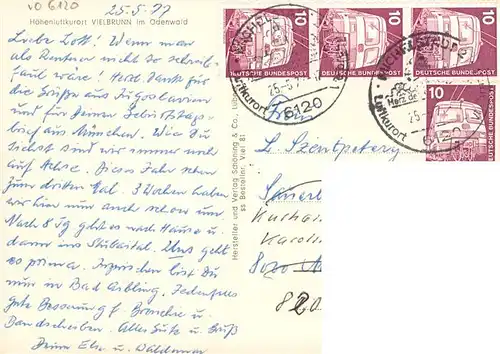 VO 6120
25-5-77
Höhenluftkurort VIELBRUNN im Odenwald
Liebe Lott! Wenn man
als Rentner nicht so schreib-
faul wäre! Herzl. Dank für
die Grüße aus Jugoslawien
und für Deinen Geburtstags-
brief aus München. Wie Du
siehst sind wir immer noch
auf Achse. Dieses Jahr schon
zum dritten Mal. 3 Wochen haben
wir hier nun auch schon um
Nach 8 Tg geht es nach Hause u.
dann ins Stubaital. Uns geht
es prima. Inzwischen bist Du
nun in Bad Aibling. Jedenfalls
gute Besserung f. Bronchie u.
Bandscheiben. Alles Gute u. Grüß
Deine Else u. Waldemar
Hersteller und Verlag Schöning & Co., Lüb
ss Bestellnr. Viel 81
10
10
10
DEUTSCHE BUNDESPOST
DEUTSCHE BUNDESPOST
DEUTSCHE BUNDESPOST
10
DEUTSCHE BUNDESPOST
MICHELSTADT
25-5.7
6120
Luftkurort
Herz de
6120
Frau
L. Szentpetery
Sauerb
Kurhau
Karoli
8000 M
820